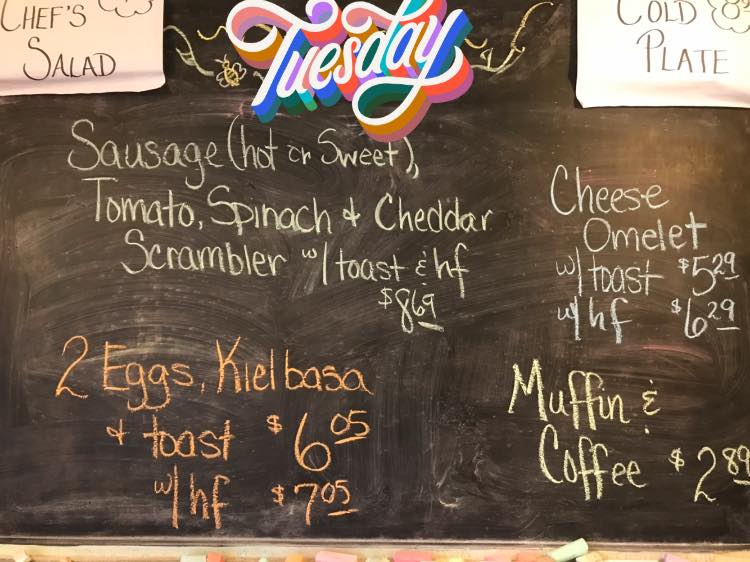 CHEF'S
SALAD
Tuesday
COLD
PLATE
Sausage (hot or Sweet),
Tomato, Spinach & Cheddar
Scrambler w/ toast & hf
$8.69
2 Eggs, Kielbasa
& toast $6.05
w/ hf $7.05
Cheese
Omelet
w/ toast $5.29
w/ hf $6.29
Muffin &
Coffee $2.89